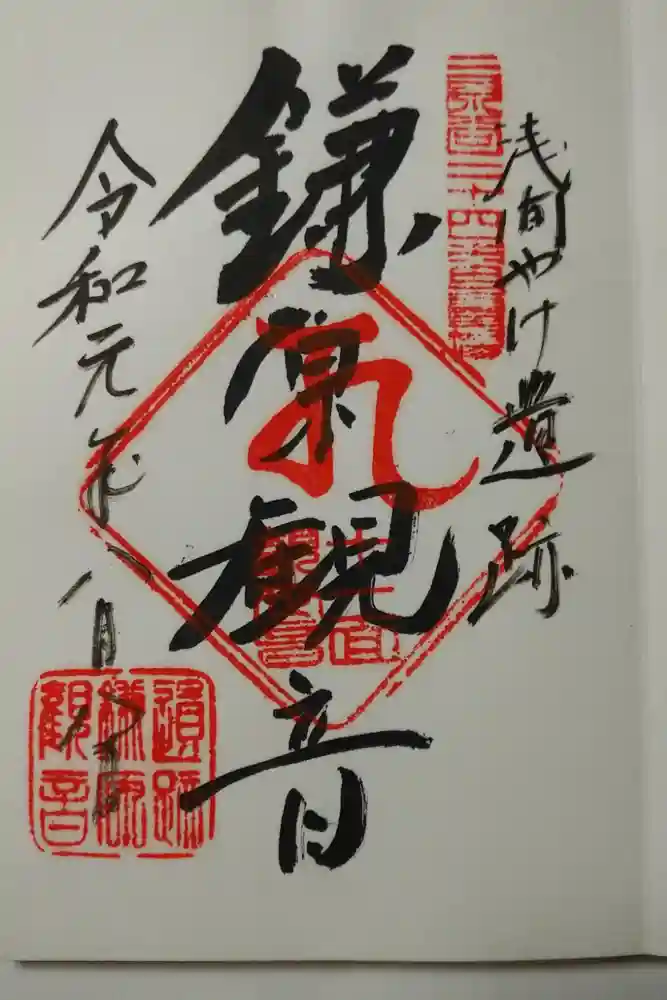 浅間やけ遺跡
鎌原観音
令和元年八月八日
遺跡
鎌原
観音